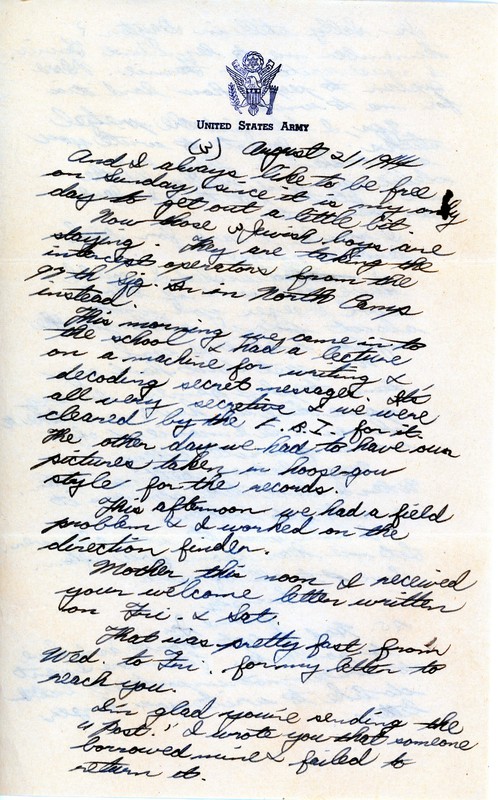 United States Army
(3) August 21, 1944
And I always like to be free
on Sunday, since it is my only
day to get out a little bit.
Now those Jewish boys are
staying. They are taking the
intercept operators from the
97th Sig. Bn in North Camp
instead.
This morning we came in to
the school & had a lecture
on a machine for writing &
decoding secret messages. It's
all very secretive & we were
cleared by the F.B.I. for it.
The other day we had to have our
pictures taken in hoose-gow
style for the records.
This afternoon we had a field
problem & I worked on the
direction finder.
Mother this noon I received
your welcome letter written
on Fri. & Sat.
That was pretty fast, from
Wed. to Fri. for my letter to
reach you.
I'm glad you're sending the
"Post." I wrote you that someone
borrowed mine & failed to
return it.